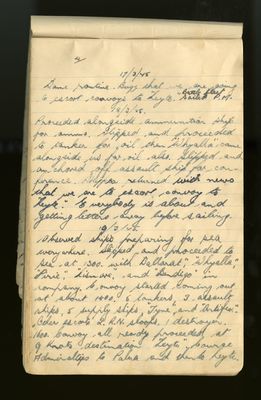 2
17/3/45
Same routine. Buzz that we are going
to escort convoys to Leyte.
18/3/45.
Proceeded alongside ammunition ship
for ammo. Slipped and proceeded
to tanker for oil then "Whyalla" came
alongside us for oil also. Slipped and
anchored off assault ship for con-
ference. returned with news
that we are to escort convoy to
Leyte. Everybody is about and
getting letters away before sailing.
19/3/45
Observed ships preparing for sea
everywhere. Slipped and proceeded to
sea at 300 with Ballarat, Whyalla,
Pirie, Lismore, and Bendigo in
company. Convoy started coming out
at about 1000. 6 tankers, 3 assault
ships, 5 supply ships, Tyne and Artifex.
Other escorts 2 R.N. sloops, 1 destroyer.
1600 Convoy all ready proceeded at
9 knots destination Leyte, course
Admiralteys to Palau and then to Leyte.